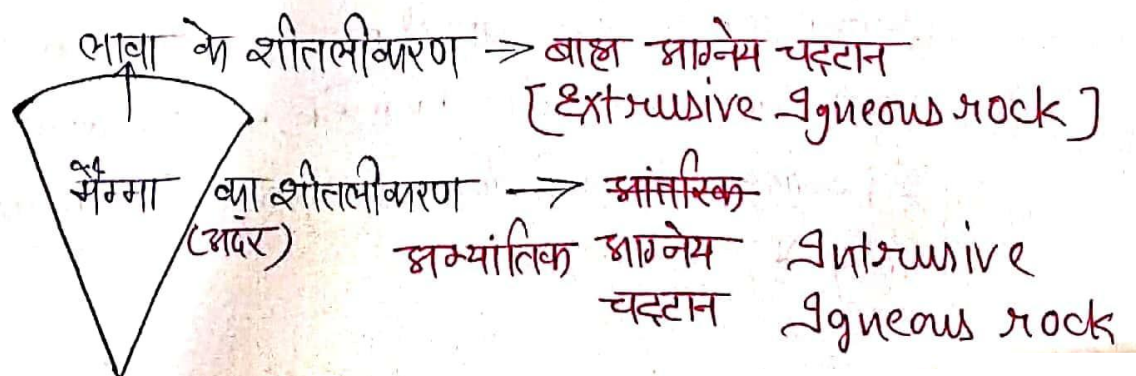 लावा के शीतलीकरण → बाह्य आग्नेय चट्टान
[Extrusive Igneous rock]
मैग्मा का शीतलीकरण → आंतरिक
(अदंर) अभ्यांतिक आग्नेय Intrusive
चट्टान Igneous rock